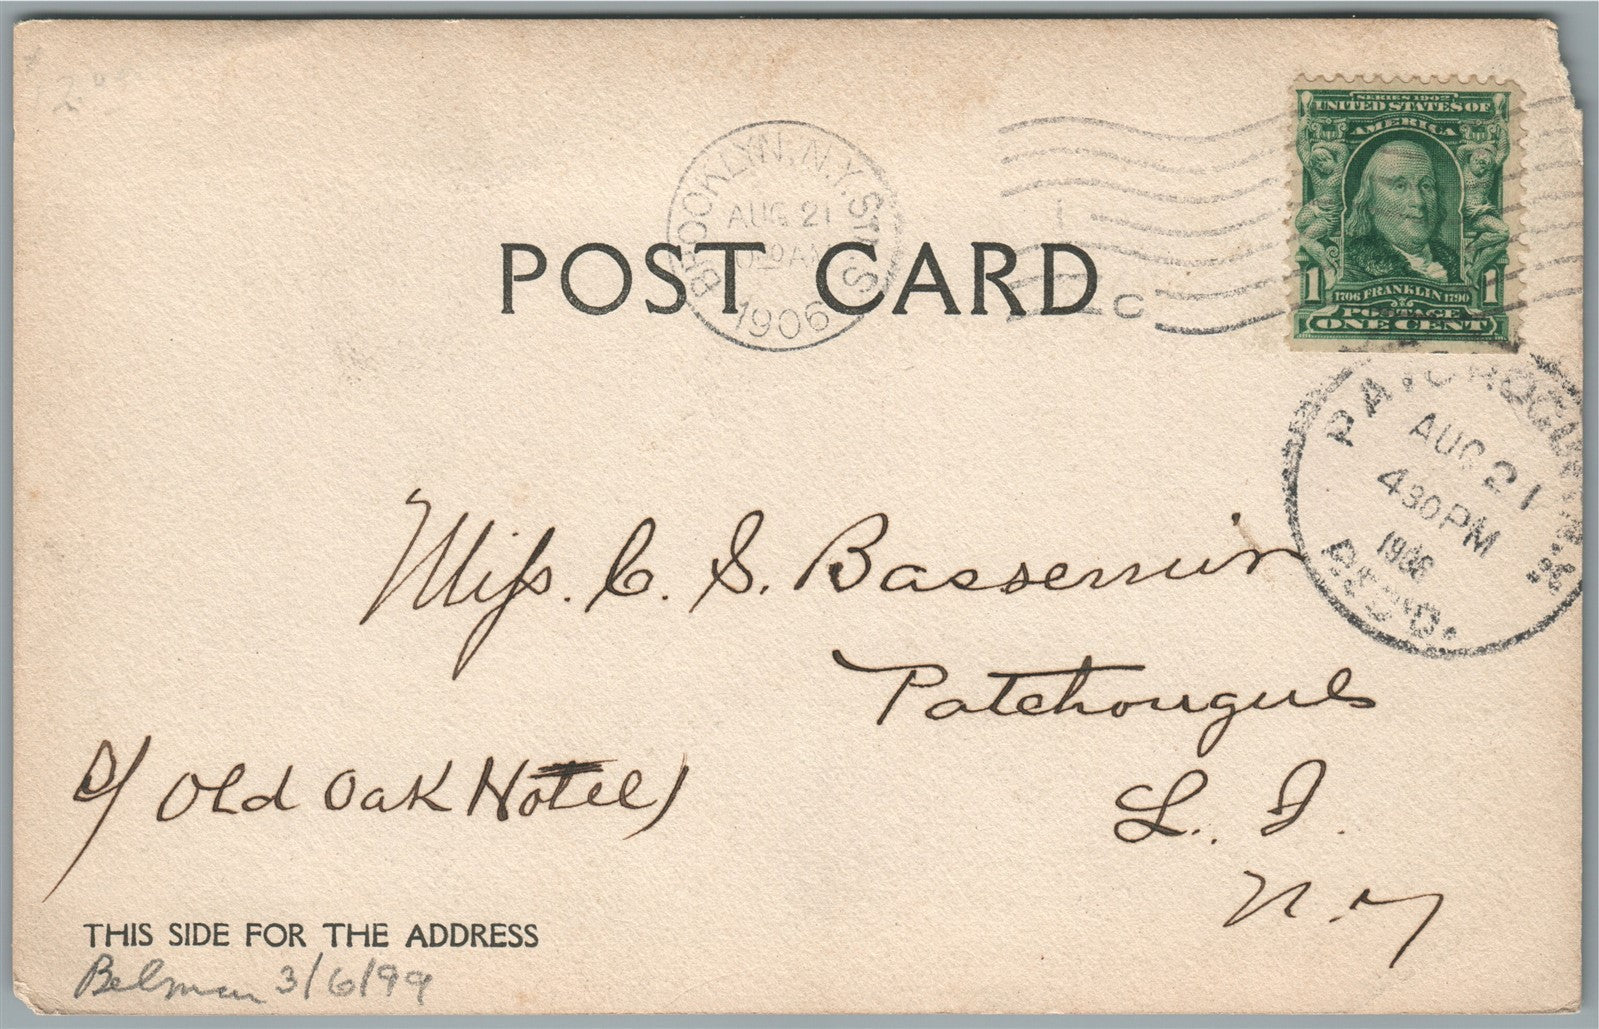 2.00
BROOKLYN, N.Y. STA. S
AUG 21
AM
1906
SERIES 1902
UNITED STATES OF
AMERICA
1 1
1706 FRANKLIN 1790
POSTAGE
ONE CENT
POST CARD
PATCHOGUE
AUG 21
430PM
1906
REC'D.
Miss. C. S. Bassermin
Patchougue
L. I.
N.Y
c/ Old Oak Hotel)
THIS SIDE FOR THE ADDRESS
Belman 3/6/99